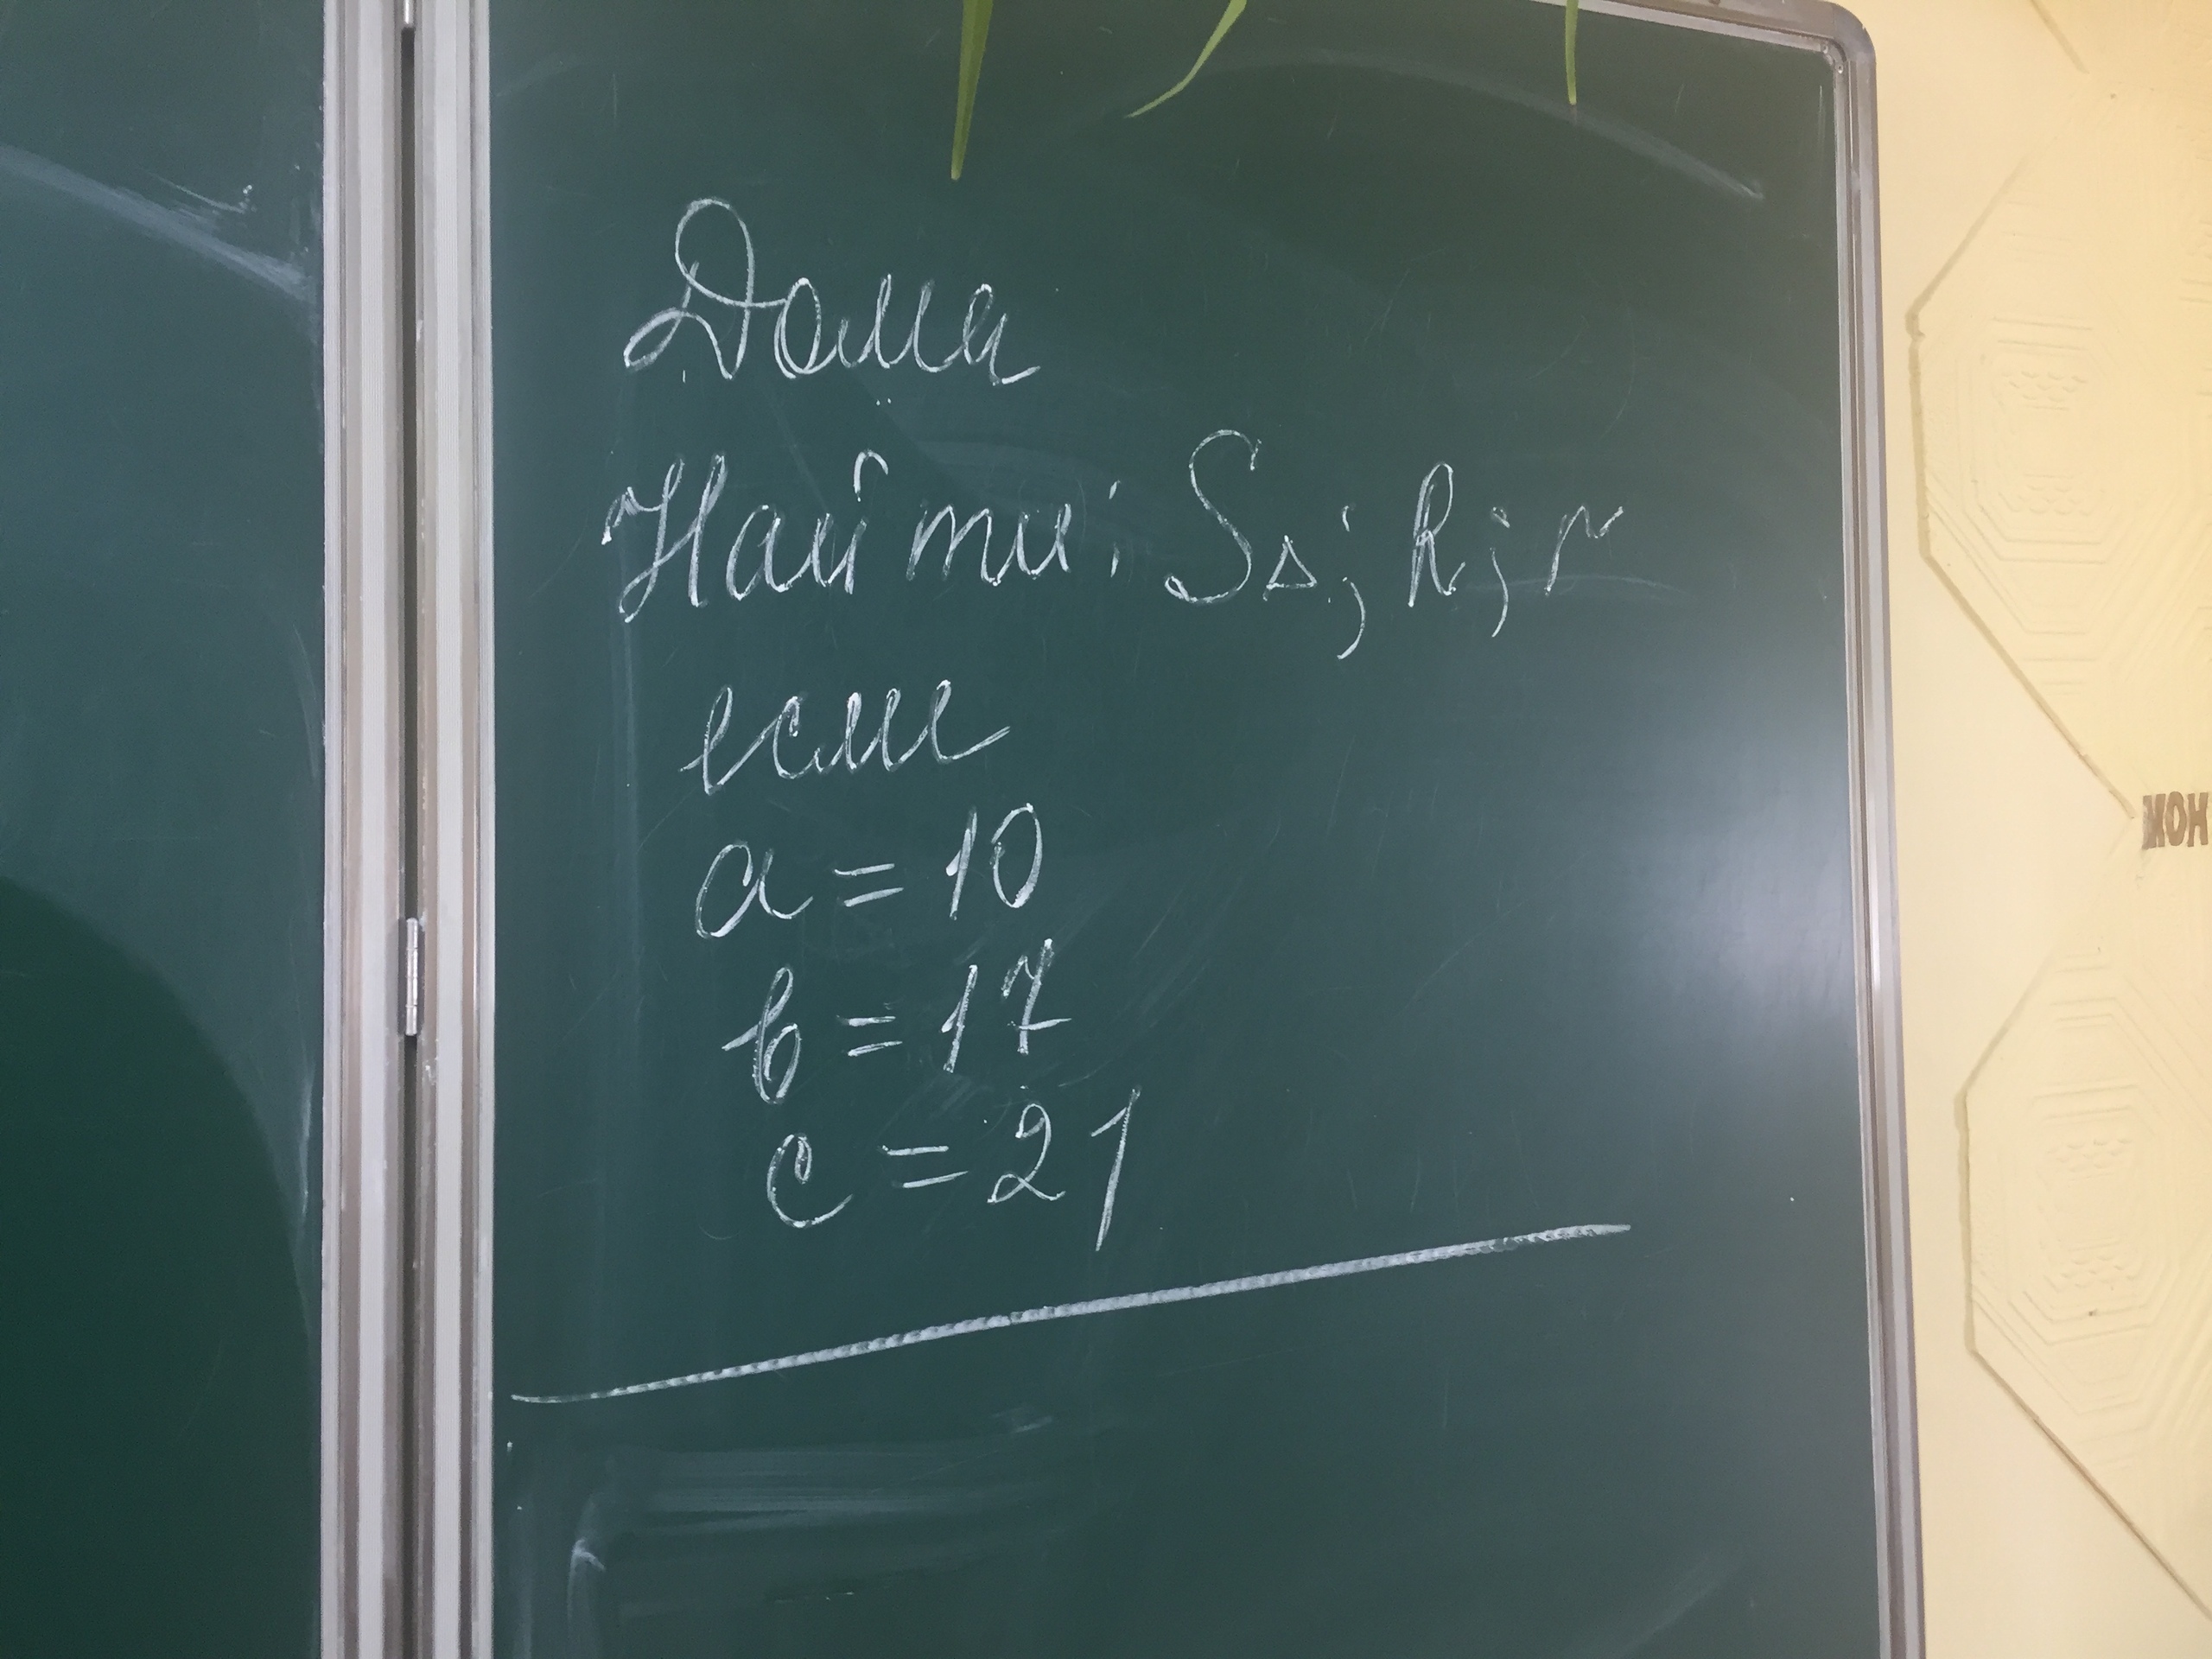 Дома
Найти: S△; R; r
если
a = 10
b = 17
c = 21
МОН